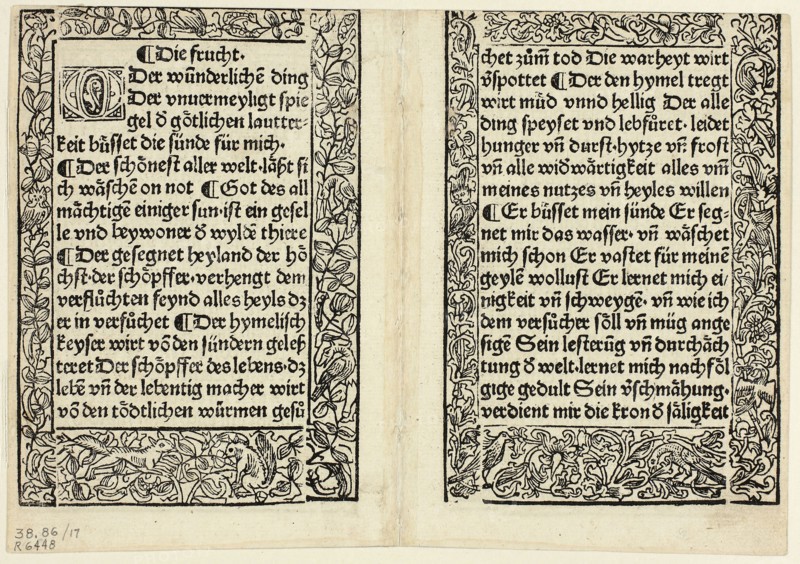 ¶Die frucht.
O Der wůnderlichē ding
Der vnuermeyligt spie
gel d̄ gȯtlichen lautter⸗
keit bůsset die sünde für mich.
¶Der schȯnest aller welt.låßt si
ch wåschē on not ¶Got des all
måchtigē einiger sun.ist ein gesel
le vnd beywoner d̄ wyldē thiere
¶Der gesegnet heyland der hȯ
chst.der schȯpffer.verhengt dem
verflůchten feynd alles heyls dz
er in versůchet ¶Der hymelisch
keyser wirt vō den sündern geleß
teret Der schȯpffer des lebens.dz
lebē vn̄ der lebentig macher wirt
vō den tȯdtlichen würmen gesů
chet zům̄ tod Die warheyt wirt
v̄spottet ¶Der den hymel tregt
wirt můd vnnd hellig Der alle
ding speyset vnd lebfůret.leidet
hunger vn̄ durst.hytze vn̄ frost
vn̄ alle widwårtigkeit alles vm̄
meines nutzes vn̄ heyles willen
¶Er bůsset mein sünde Er seg⸗
net mir das wasser.vn̄ wåschet
mich schon Er vastet für meinē
geylē wollust Er lernet mich ei/
nigkeit vn̄ schweygē.vn̄ wie ich
dem versůcher sȯll vn̄ müg ange
sigē Sein lesterūg vn̄ durchåch
tung d̄ welt.lernet mich nachfȯl
gige gedult Sein v̄schmåhung.
verdient mir die kron d̄ såligkeit
38.86/17
R6448